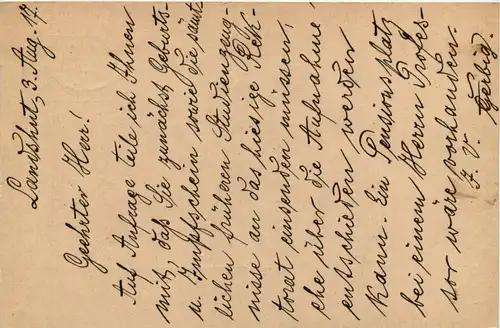 Landshut, 3. Aug. 17.
Geehrter Herr!
Auf Anfrage teile ich Ihnen
mit, daß Sie zunächst Geburts-
u. Impfschein sowie die sämt-
lichen früheren Studienzeug-
nisse an das hiesige Rek-
torat einsenden müssen,
ehe über die Aufnahme
entschieden werden
kann. Ein Pensionsplatz
bei einem Herrn Profes-
sor wäre vorhanden.
I. V.